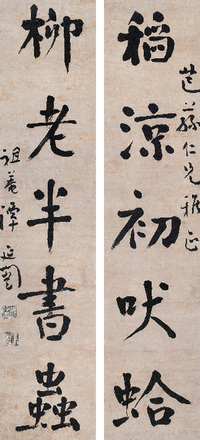 芑荪仁兄雅正
稻凉初吠蛤
柳老半書蟲
祖菴譚延闓